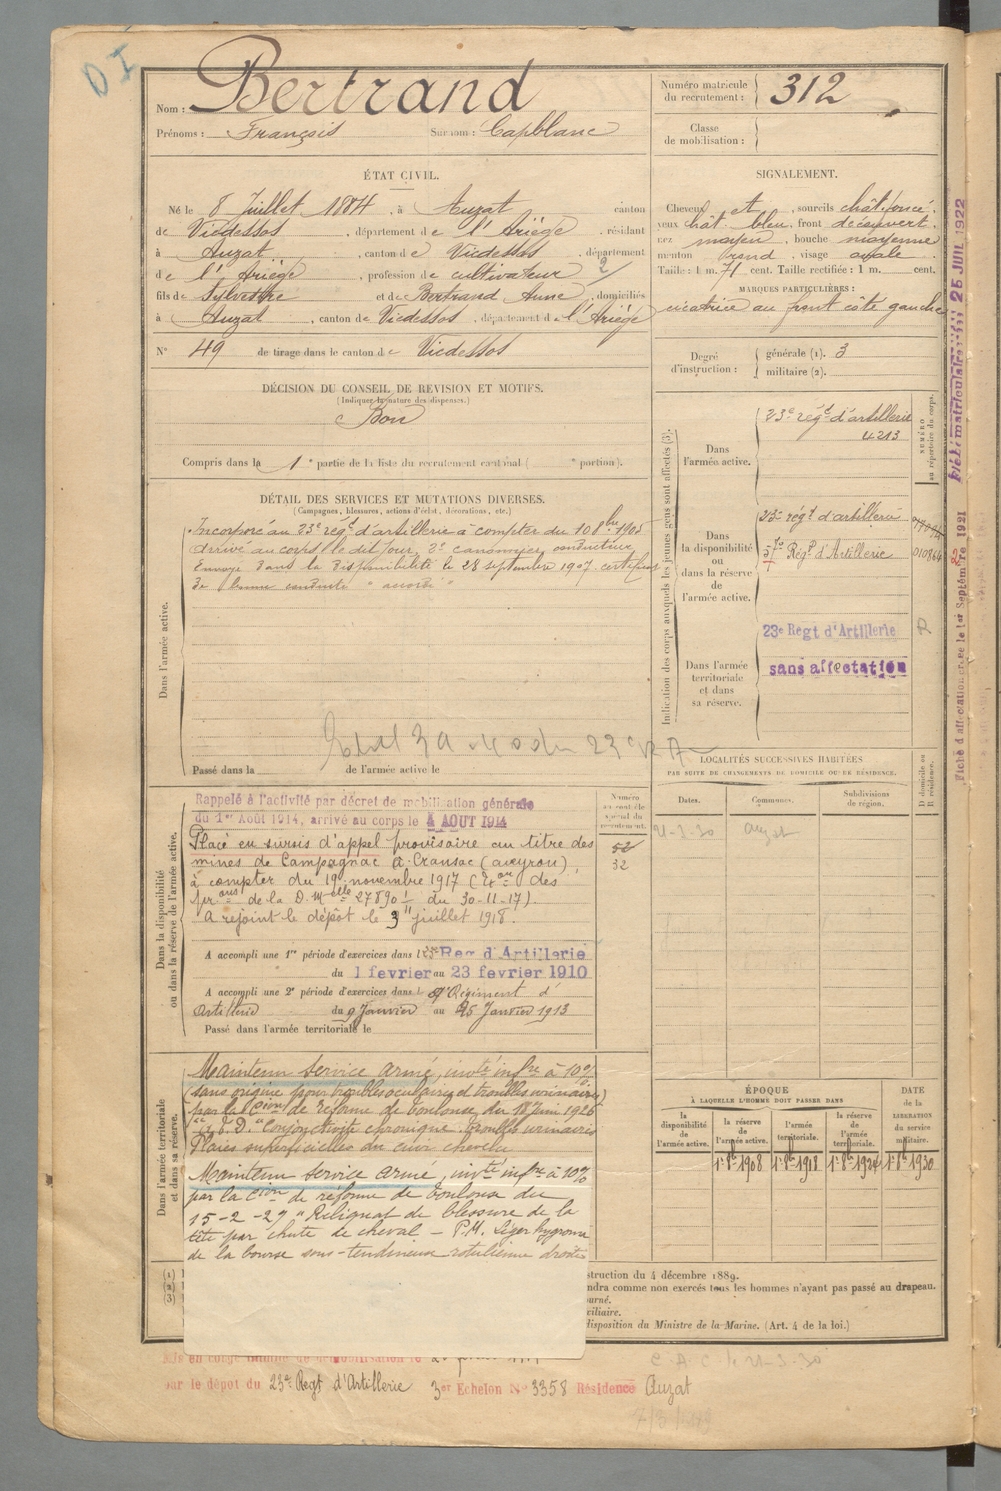 Nom : Bertrand
Prénoms : François Surnom : Capblanc
Numéro matricule
du recrutement : 312
Classe
de mobilisation :
ÉTAT CIVIL.
Né le 8 Juillet 1884, à Auzat canton
de Vicdessos, département de l'Ariège, résidant
à Auzat, canton de Vicdessos, département
de l'Ariège, profession de cultivateur 2/
fils de Sylvestre et de Bertrand Anne, domiciliés
à Auzat, canton de Vicdessos, département de l'Ariège
N° 49 de tirage dans le canton de Vicdessos
SIGNALEMENT.
Cheveux et, sourcils chât. foncé.
yeux chât. bleu, front découvert.
nez moyen, bouche moyenne
menton rond, visage ovale.
Taille : 1 m. 71 cent. Taille rectifiée : 1 m. cent.
MARQUES PARTICULIÈRES :
cicatrice au front côté gauche
Degré
d'instruction :
générale (1). 3
militaire (2).
DÉCISION DU CONSEIL DE REVISION ET MOTIFS.
(Indiquer la nature des dispenses.)
Bon
Compris dans la 1e partie de la liste du recrutement cantonal ( e portion).
DÉTAIL DES SERVICES ET MUTATIONS DIVERSES.
(Campagnes, blessures, actions d'éclat, décorations, etc.)
Dans l'armée active.
Incorporé au 23e régt d'artillerie à compter du 10 8bre 1905
Arrivé au corps le dit jour, 2e canonnier conducteur
Envoyé dans la disponibilité le 28 septembre 1907 certificat
de bonne conduite "accordé"
Passé dans la de l'armée active le
Indication des corps auxquels les jeunes gens sont affectés (3).
Dans
l'armée active.
23e régt d'artillerie
4213
NUMÉRO
au répertoire du corps.
Dans
la disponibilité
ou
dans la réserve
de
l'armée active.
23e régt d'artillerie
57e Régt d'Artillerie 010966
23e Regt d'Artillerie R
Dans l'armée
territoriale
et dans
sa réserve.
sans affectation
LOCALITÉS SUCCESSIVES HABITÉES
PAR SUITE DE CHANGEMENTS DE DOMICILE OU DE RÉSIDENCE.
Dates.
Communes.
Subdivisions
de région.
D domicile ou
R résidence.
21-3-30 Auzat
Dans la disponibilité
ou dans la réserve de l'armée active.
Numéro
au contrôle
spécial du
recrutement.
52
32
Rappelé à l'activité par décret de mobilisation générale
du 1er Août 1914, arrivé au corps le 4 AOUT 1914
Placé en sursis d'appel provisoire au titre des
mines de Campagnac à Cransac (aveyron)
à compter du 19 novembre 1917 ( des
de la D. Melle 27890 du 30-11-17).
A rejoint le dépôt le 3 juillet 1918.
A accompli une 1re période d'exercices dans le 23e Reg d'Artillerie
du 1 fevrier au 23 fevrier 1910
A accompli une 2e période d'exercices dans le Régiment d'
Artillerie du 9 Janvier au 25 Janvier 1913
Passé dans l'armée territoriale le
Dans l'armée territoriale
et dans sa réserve.
Maintenu service armé, invté infre à 10%
(sans origine pour troubles oculaires et troubles urinaires)
par la Cion de réforme de Toulouse du 18 Juin 1926
"Conjonctivite chronique. Troubles urinaires
Plaies superficielles du cuir chevelu.
Maintenu service armé, invté infre à 10%
par la Cion de réforme de Toulouse du
15-2-29 "Reliquat de blessure de la
tête par chute de cheval - P.M. Léger hygroma
de la bourse sous-tendineuse rotulienne droite
ÉPOQUE
À LAQUELLE L'HOMME DOIT PASSER DANS
la
disponibilité
de
l'armée active.
la
réserve
de
l'armée active.
l'armée
territoriale.
la réserve
de
l'armée
territoriale.
DATE
de la
LIBÉRATION
du service
militaire.
1er 8bre 1908 1er 8bre 1918 1er 8bre 1924 1er 8bre 1930
(1)
(2)
(3)
struction du 4 décembre 1889.
ndra comme non exercés tous les hommes n'ayant pas passé au drapeau.
ourné.
xiliaire.
disposition du Ministre de la Marine. (Art. 4 de la loi.)
Mis en congé illimité de démobilisation le
par le dépot du 23e Regt d'Artillerie 3er Echelon N° 3358 Résidence Auzat
C.A.C. le 21-3-30
Fiche matriculaire 25 JUIL 1922
Fiche d'affectation créée le 1er Septembre 1921